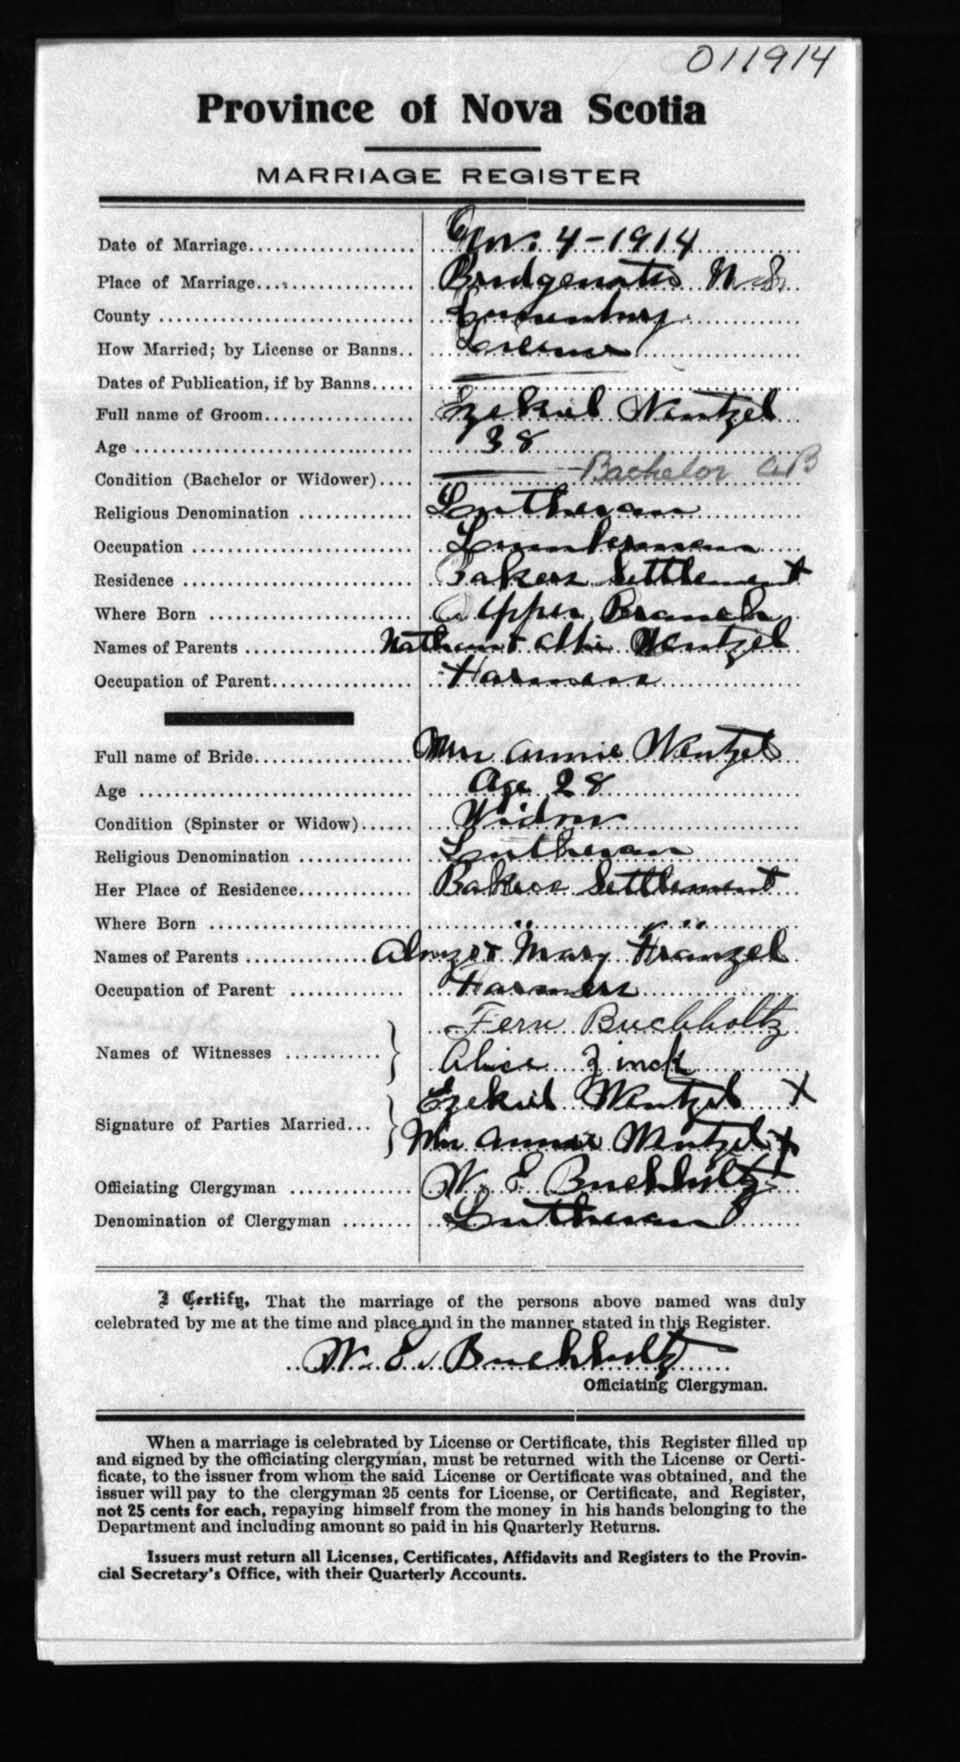 011914
Province of Nova Scotia
MARRIAGE REGISTER
Date of Marriage Nov. 4-1914
Place of Marriage Bridgewater N.S.
County Lunenburg
How Married; by License or Banns License
Dates of Publication, if by Banns
Full name of Groom Ezekiel Wentzel
Age 38
Condition (Bachelor or Widower) Bachelor
Religious Denomination Lutheran
Occupation Lumberman
Residence Bakers Settlement
Where Born Upper Branch
Names of Parents Nathan + Wentzel
Occupation of Parent Farmers
Full name of Bride Mrs Annie Wentzel
Age Age 28
Condition (Spinster or Widow) Widow
Religious Denomination Lutheran
Her Place of Residence Bakers Settlement
Where Born
Names of Parents + Mary
Occupation of Parent Farmers
Names of Witnesses Fern Buchholtz
Alice Zinck
Signature of Parties Married Ezekiel Wentzel X
Mrs Annie Wentzel X
Officiating Clergyman W. E. Buchholtz
Denomination of Clergyman Lutheran
I Certify, That the marriage of the persons above named was duly
celebrated by me at the time and place and in the manner stated in this Register.
W. E. Buchholtz
Officiating Clergyman.
When a marriage is celebrated by License or Certificate, this Register filled up
and signed by the officiating clergyman, must be returned with the License or Certi-
ficate, to the issuer from whom the said License or Certificate was obtained, and the
issuer will pay to the clergyman 25 cents for License, or Certificate, and Register,
not 25 cents for each, repaying himself from the money in his hands belonging to the
Department and including amount so paid in his Quarterly Returns.
Issuers must return all Licenses, Certificates, Affidavits and Registers to the Provin-
cial Secretary's Office, with their Quarterly Accounts.